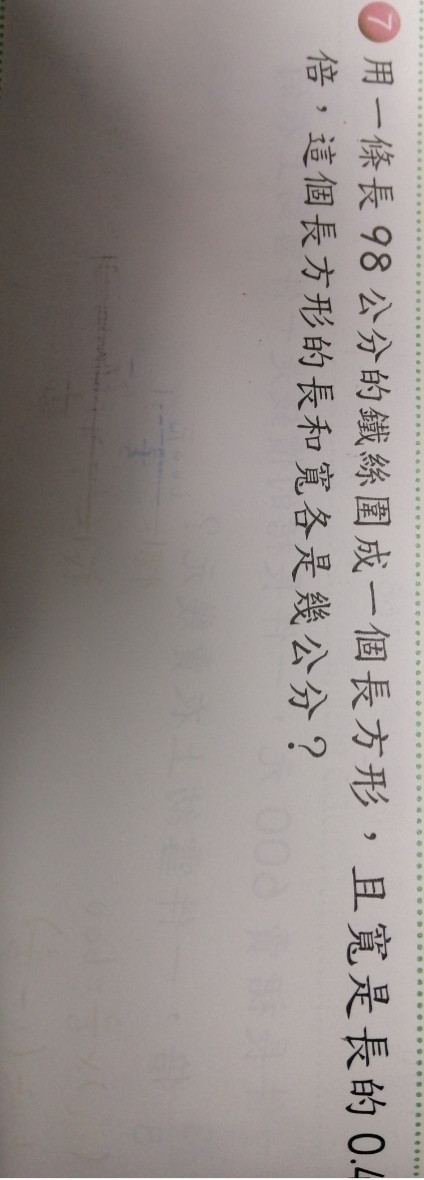 7 用一條長98公分的鐵絲圍成一個長方形，且寬是長的0.4
倍，這個長方形的長和寬各是幾公分？